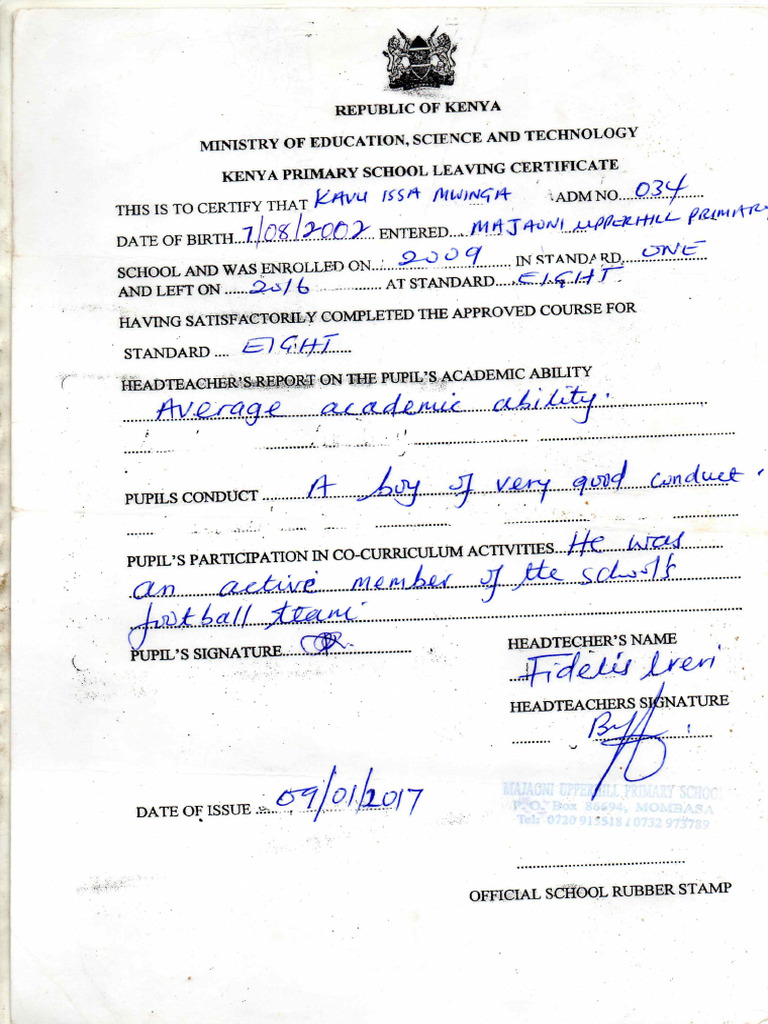 REPUBLIC OF KENYA
MINISTRY OF EDUCATION, SCIENCE AND TECHNOLOGY
KENYA PRIMARY SCHOOL LEAVING CERTIFICATE
THIS IS TO CERTIFY THAT KAVU ISSA MWINGA ADM NO. 034
DATE OF BIRTH 7/08/2002 ENTERED MAJAONI UPPERHILL PRIMARY
SCHOOL AND WAS ENROLLED ON 2009 IN STANDARD ONE
AND LEFT ON 2016 AT STANDARD EIGHT
HAVING SATISFACTORILY COMPLETED THE APPROVED COURSE FOR
STANDARD EIGHT
HEADTEACHER'S REPORT ON THE PUPIL'S ACADEMIC ABILITY
Average academic ability.
PUPILS CONDUCT A boy of very good conduct.
PUPIL'S PARTICIPATION IN CO-CURRICULUM ACTIVITIES He was
an active member of the school's
football team
PUPIL'S SIGNATURE
HEADTECHER'S NAME
Fidelis Ireri
HEADTEACHERS SIGNATURE
DATE OF ISSUE 09/01/2017
MAJAONI UPPERHILL PRIMARY SCHOOL
P. O. Box 86694, MOMBASA
Tel: 0720 915518 / 0732 973789
OFFICIAL SCHOOL RUBBER STAMP